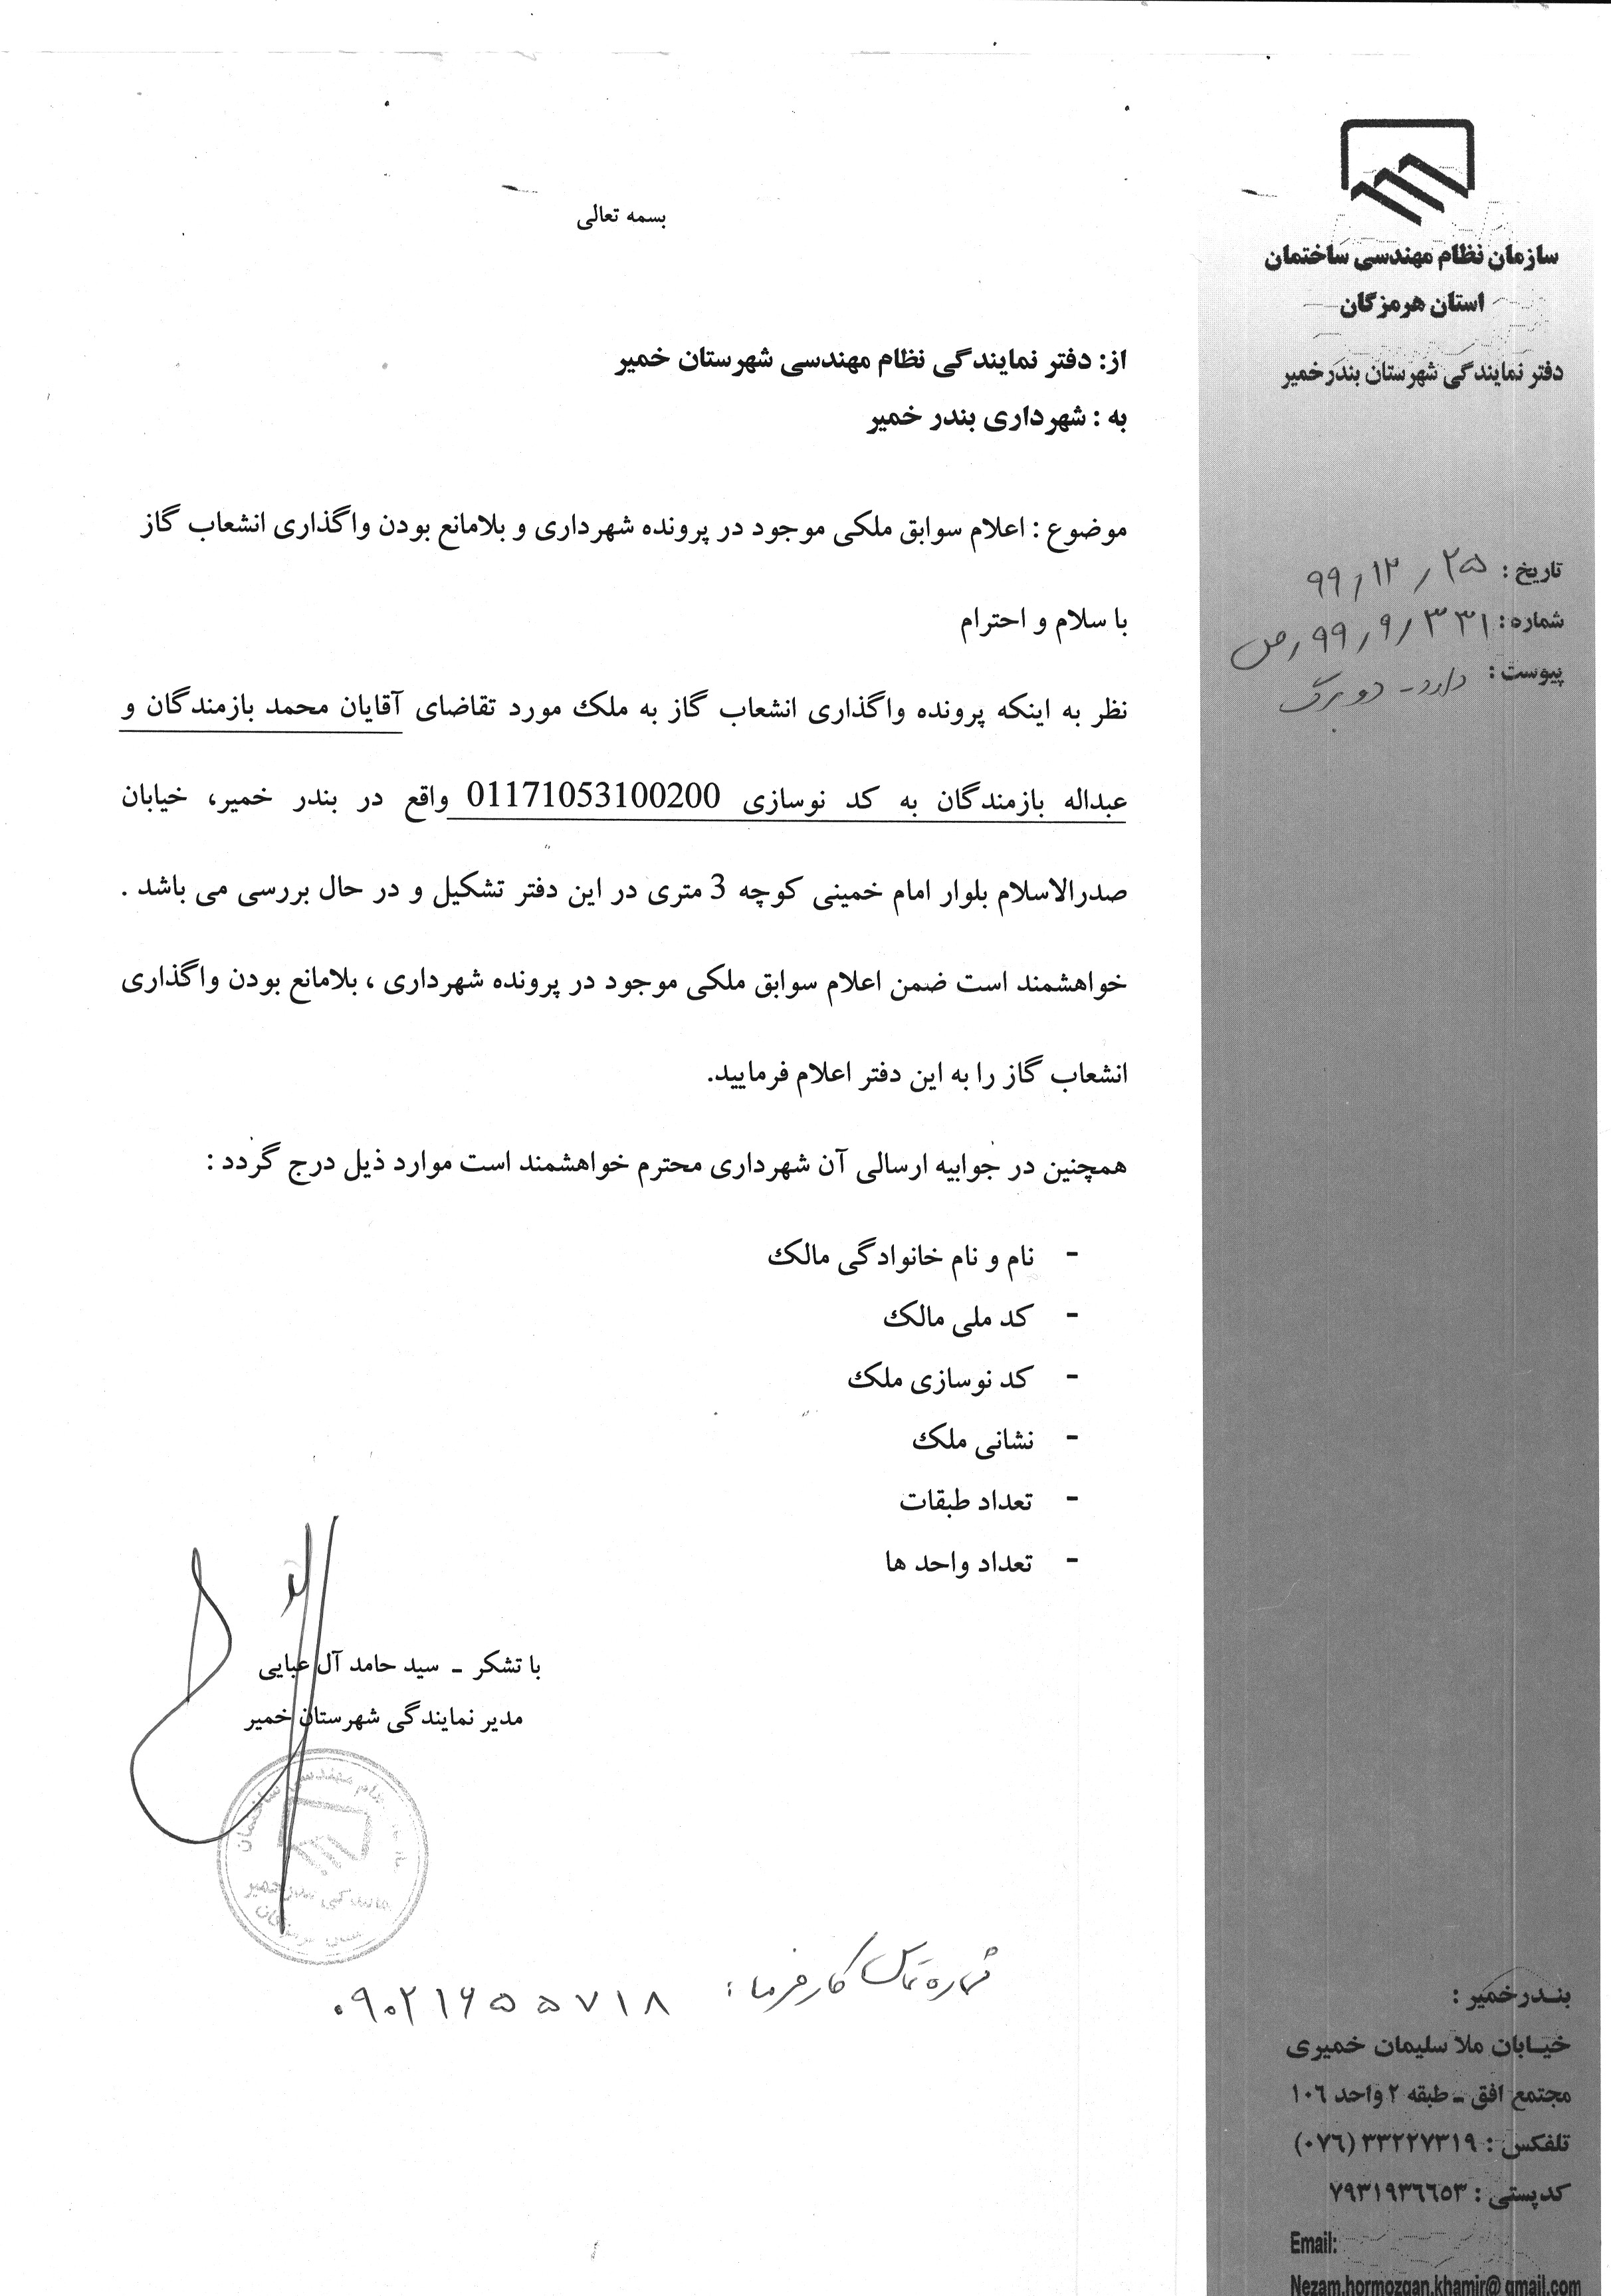 سازمان نظام مهندسی ساختمان
استان هرمزگان
دفتر نمایندگی شهرستان بندرخمیر
تاریخ : ۹۹,۱۲,۲۵
شماره : ۳۳۱ / ۹ , ۹۹ , ص
پیوست : دارد - دو برگ
بسمه تعالی
از: دفتر نمایندگی نظام مهندسی شهرستان خمیر
به : شهرداری بندر خمیر
موضوع : اعلام سوابق ملکی موجود در پرونده شهرداری و بلامانع بودن واگذاری انشعاب گاز
با سلام و احترام
نظر به اینکه پرونده واگذاری انشعاب گاز به ملک مورد تقاضای آقایان محمد بازمندگان و
عبداله بازمندگان به کد نوسازی 01171053100200 واقع در بندر خمیر، خیابان
صدرالاسلام بلوار امام خمینی کوچه 3 متری در این دفتر تشکیل و در حال بررسی می باشد .
خواهشمند است ضمن اعلام سوابق ملکی موجود در پرونده شهرداری ، بلامانع بودن واگذاری
انشعاب گاز را به این دفتر اعلام فرمایید.
همچنین در جوابیه ارسالی آن شهرداری محترم خواهشمند است موارد ذیل درج گردد :
- نام و نام خانوادگی مالک
- کد ملی مالک
- کد نوسازی ملک
- نشانی ملک
- تعداد طبقات
- تعداد واحد ها
با تشکر ـ سید حامد آل عبایی
مدیر نمایندگی شهرستان خمیر
شماره تماس کارفرما : ۰۹۰۲۱۶۵۵۷۱۸
بندرخمیر :
خیابان ملا سلیمان خمیری
مجتمع افق ـ طبقه ۲ واحد ۱۰۶
تلفکس : ۳۳۲۲۷۳۱۹ (۰۷۶)
کدپستی : ۷۹۳۱۹۳۶۶۵۳
Email:
Nezam.hormozgan.khamir@gmail.com